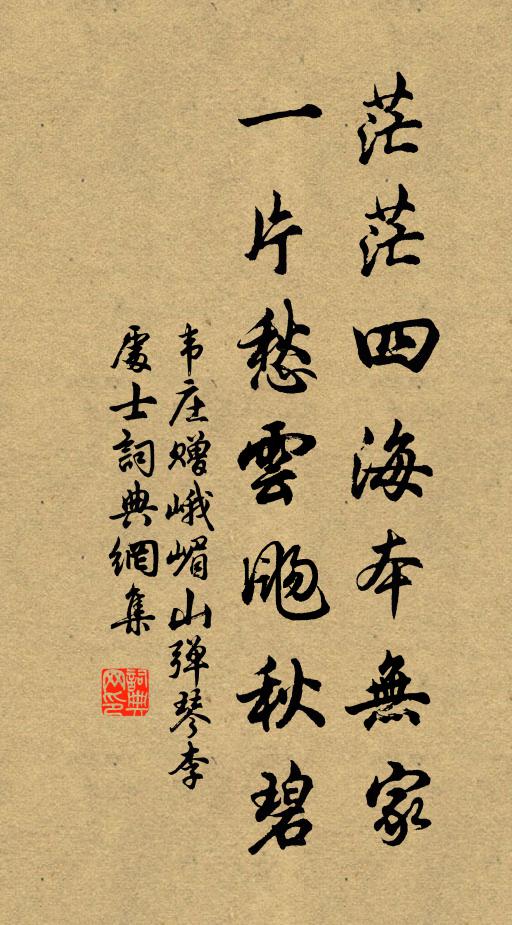 茫茫四海本無家
一片愁雲飏秋碧
韦庄赠峨嵋山弹琴李
處士詞典網集
詞典网印